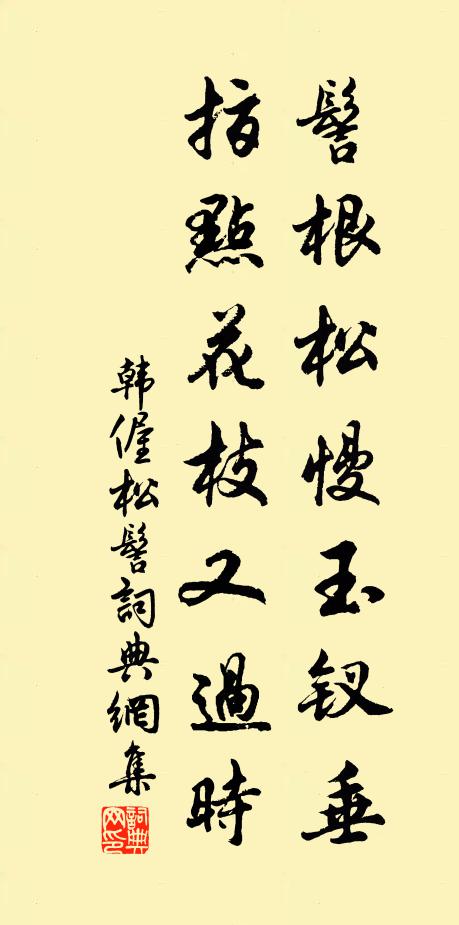 髻根松慢玉钗垂
指點花枝又過時
韩偓松髻詞典網集
詞典网印